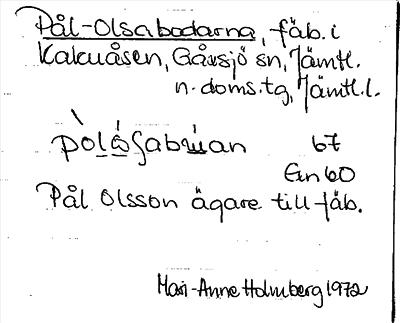 Pål-Olsabodarna, fäb. i
Kakuåsen, Gåxsjö sn, Jämtl.
n. doms. tg, Jämtl. l.
67
En 60
Pål Olsson ägare till fäb.
Mari-Anne Holmberg 1972